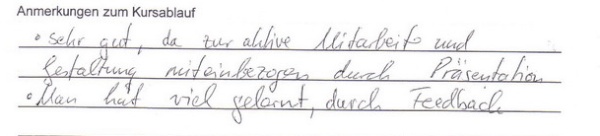 Anmerkungen zum Kursablauf
• sehr gut, da zur aktive Mitarbeit und
Gestaltung miteinbezogen durch Präsentation
• Man hat viel gelernt, durch Feedback